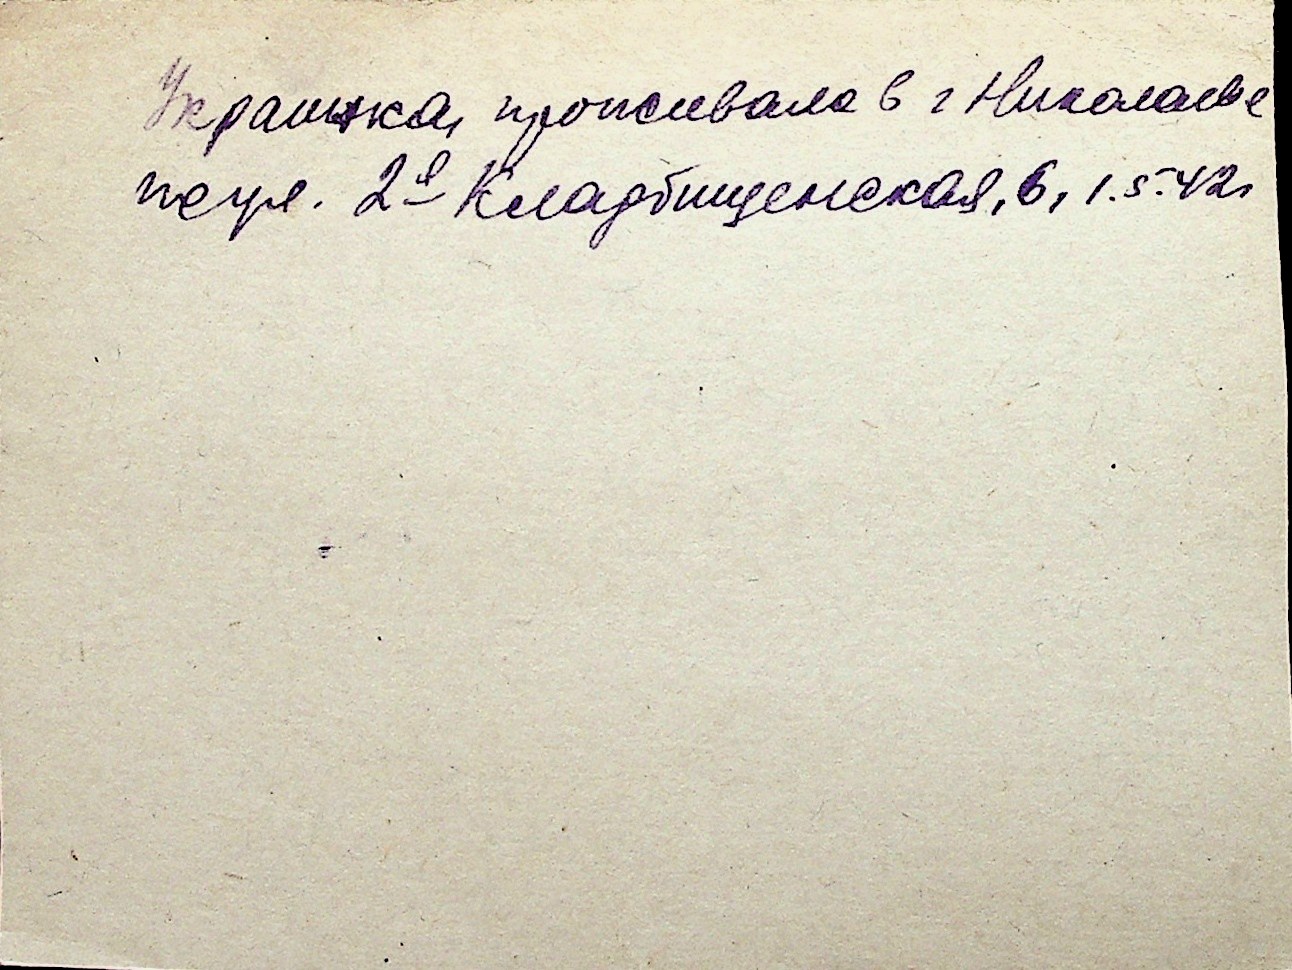 Украинка, проживала в г Николаеве
по ул. 2я Кладбищенская, 6, 1.5.42г